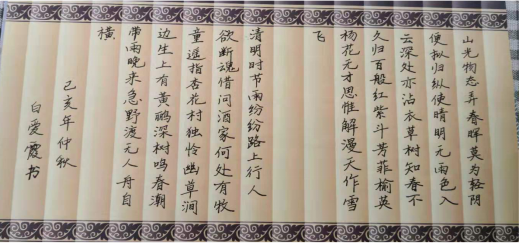 山光物态弄春晖莫为轻阴
便拟归纵使晴明无雨色入
云深处亦沾衣草树知春不
久归百般红紫斗芳菲榆英
杨花无才思惟解漫天作雪
飞
清明时节雨纷纷路上行人
欲断魂借问酒家何处有牧
童遥指杏花村独怜幽草涧
边生上有黄鹂深树鸣春潮
带雨晚来急野渡无人舟自
横
己亥年仲秋
白爱霞书